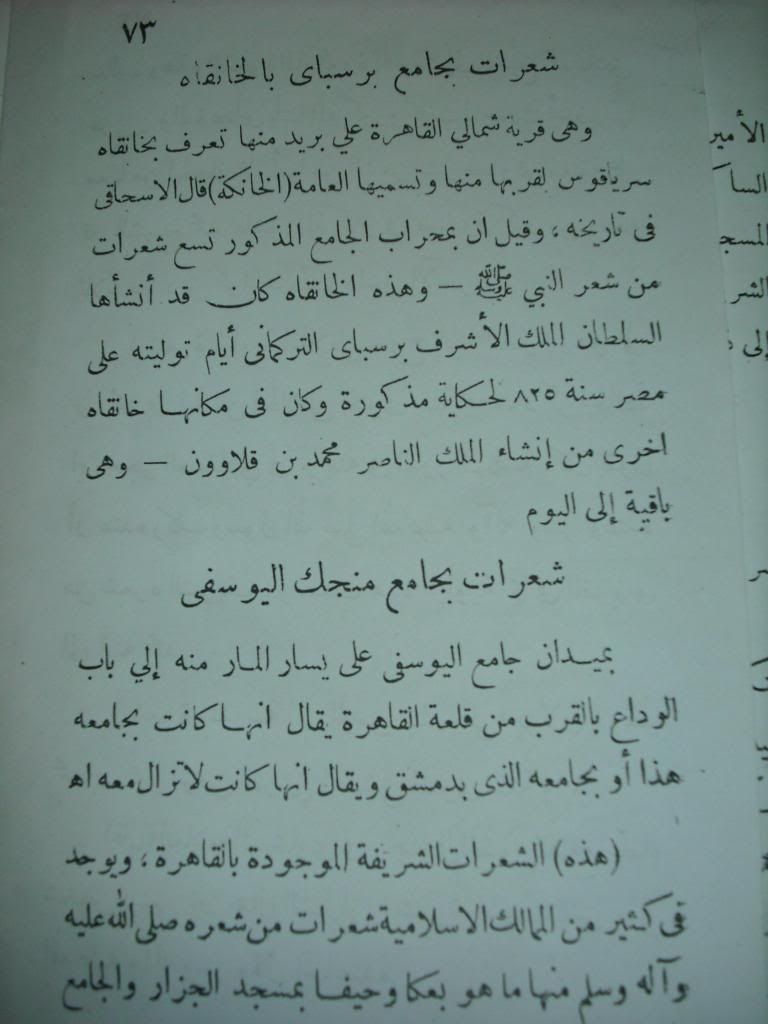 ٧٣
شعرات بجامع برسباى بالخانقاه
وهى قرية شمالي القاهرة علي بريد منها تعرف بخانقاه
سرياقوس لقربها منها وتسميها العامة (الخانكة) قال الاسحاقى
فى تاريخه ، وقيل ان بمحراب الجامع المذكور تسع شعرات
من شعر النبي ﷺ — وهذه الخانقاه كان قد أنشأها
السلطان الملك الأشرف برسباى التركمانى أيام توليته على
مصر سنة ٨٢٥ لحكاية مذكورة وكان فى مكانها خانقاه
اخرى من إنشاء الملك الناصر محمد بن قلاوون — وهى
باقية إلى اليوم
شعرات بجامع منجك اليوسفى
بميدان جامع اليوسفى على يسار المار منه إلي باب
الوداع بالقرب من قلعة القاهرة يقال انها كانت بجامعه
هذا أو بجامعه الذى بدمشق ويقال انها كانت لاتزال معه اه
(هذه) الشعرات الشريفة الموجودة بالقاهرة ، ويوجد
فى كثير من الممالك الاسلامية شعرات من شعره صلى الله عليه
وآله وسلم منها ما هو بعكا وحيفا بمسجد الجزار والجامع
الأمير
المسج
الشر
إلى